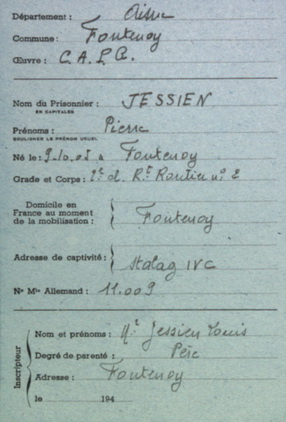 Département : Aisne
Commune : Fontenoy
Œuvre : C.A.P.G.
Nom du Prisonnier : JESSIEN
EN CAPITALES
Prénoms : Pierre
SOULIGNER LE PRÉNOM USUEL
Né le : 9.10.05 à Fontenoy
Grade et Corps : 2e cl. Rt Routier n° 2
Domicile en
France au moment
de la mobilisation : Fontenoy
Adresse de captivité : Stalag IVC
N° Mle Allemand : 11.009
Inscripteur
Nom et prénoms : Mr Jessien Louis
Degré de parenté : Père
Adresse : Fontenoy
le 194